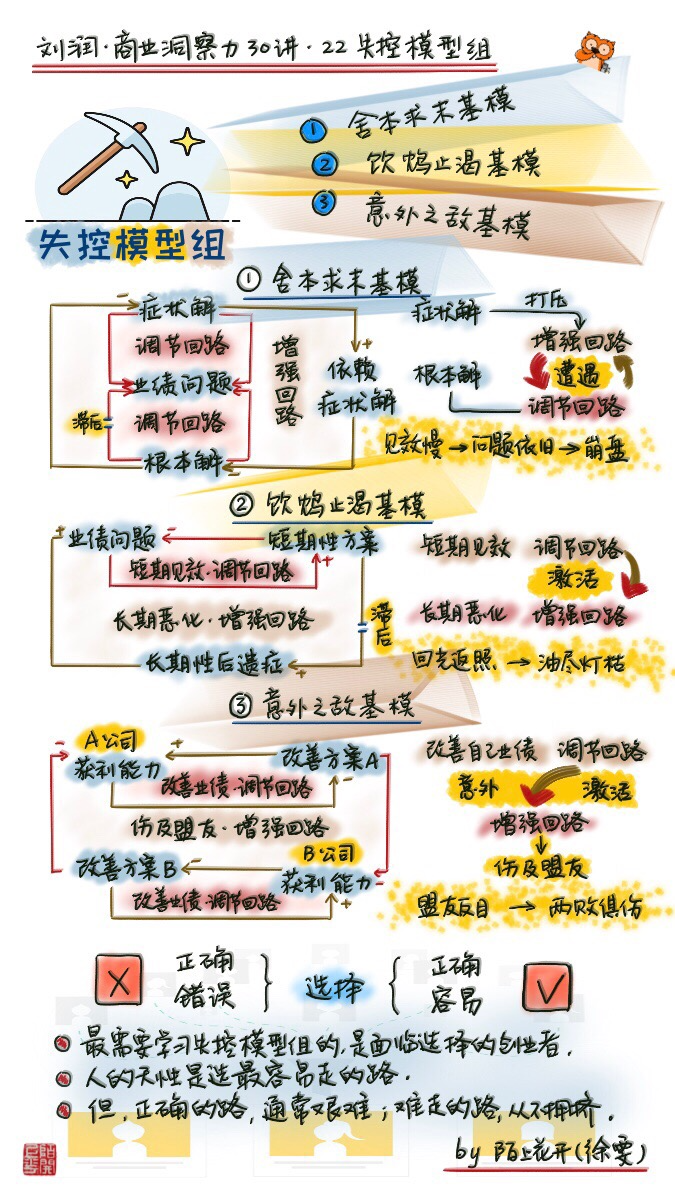 刘润·商业洞察力30讲·22失控模型组
① 舍本求末基模
② 饮鸩止渴基模
③ 意外之敌基模
失控模型组
① 舍本求末基模
- 症状解
调节回路
业绩问题
滞后
调节回路
- 根本解
增强回路
+
依赖
症状解
症状解 打压
增强回路
根本解 遭遇
调节回路
见效慢→问题依旧→崩盘
② 饮鸩止渴基模
+ 业绩问题 - 短期性方案
短期见效·调节回路 +
长期恶化·增强回路
滞后
长期性后遗症 +
短期见效 调节回路
激活
长期恶化 增强回路
回光返照 → 油尽灯枯
③ 意外之敌基模
A公司
- 获利能力 + 改善方案A
改善业绩·调节回路 -
伤及盟友·增强回路
B公司
- 改善方案B - 获利能力 -
改善业绩·调节回路 +
改善自己业绩 调节回路
意外 激活
增强回路
伤及盟友
盟友反目 → 两败俱伤
X 正确 错误 } 选择 { 正确 容易 V
最需要学习失控模型组的,是面临选择的创业者.
人的天性是选最容易走的路.
但,正确的路,通常艰难;难走的路,从不拥挤.
by 陌上花开(徐雯)